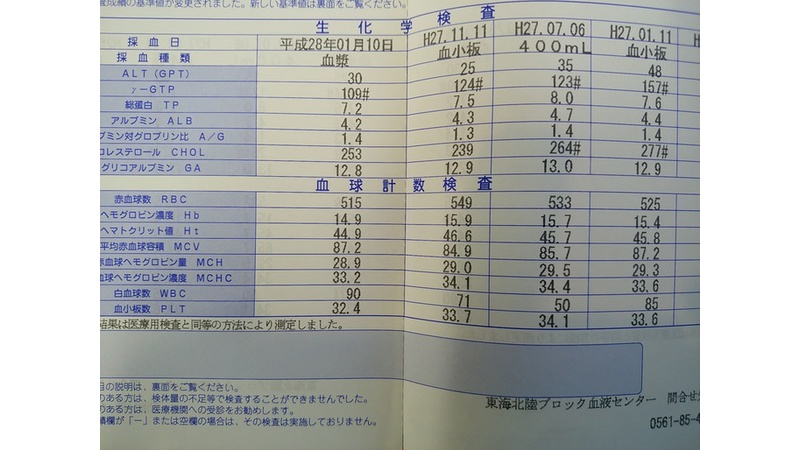 査成績の基準値が変更されました。新しい基準値は裏面をご覧ください。
生 化 学 検 査
採 血 日 平成28年01月10日 H27.11.11 H27.07.06 H27.01.11
採 血 種 類 血漿 血小板 400mL 血小板
ALT (GPT) 30 25 35 48
γ-GTP 109# 124# 123# 157#
総蛋白 TP 7.2 7.5 8.0 7.6
アルブミン ALB 4.2 4.3 4.7 4.4
ブミン対グロブリン比 A/G 1.4 1.3 1.4 1.4
コレステロール CHOL 253 239 264# 277#
グリコアルブミン GA 12.8 12.9 13.0 12.9
血 球 計 数 検 査
赤血球数 RBC 515 549 533 525
ヘモグロビン濃度 Hb 14.9 15.9 15.7 15.4
ヘマトクリット値 Ht 44.9 46.6 45.7 45.8
平均赤血球容積 MCV 87.2 84.9 85.7 87.2
赤血球ヘモグロビン量 MCH 28.9 29.0 29.5 29.3
血球ヘモグロビン濃度 MCHC 33.2 34.1 34.4 33.6
白血球数 WBC 90 71 50 85
血小板数 PLT 32.4 33.7 34.1 33.6
結果は医療用検査と同等の方法により測定しました。
目の説明は、裏面をご覧ください。
のある方は、検体量の不足等で検査することができませんでした。
のある方は、医療機関への受診をお勧めします。
績欄が「ー」または空欄の場合は、その検査は実施しておりません。
東海北陸ブロック血液センター 問合せ
0561-85-4